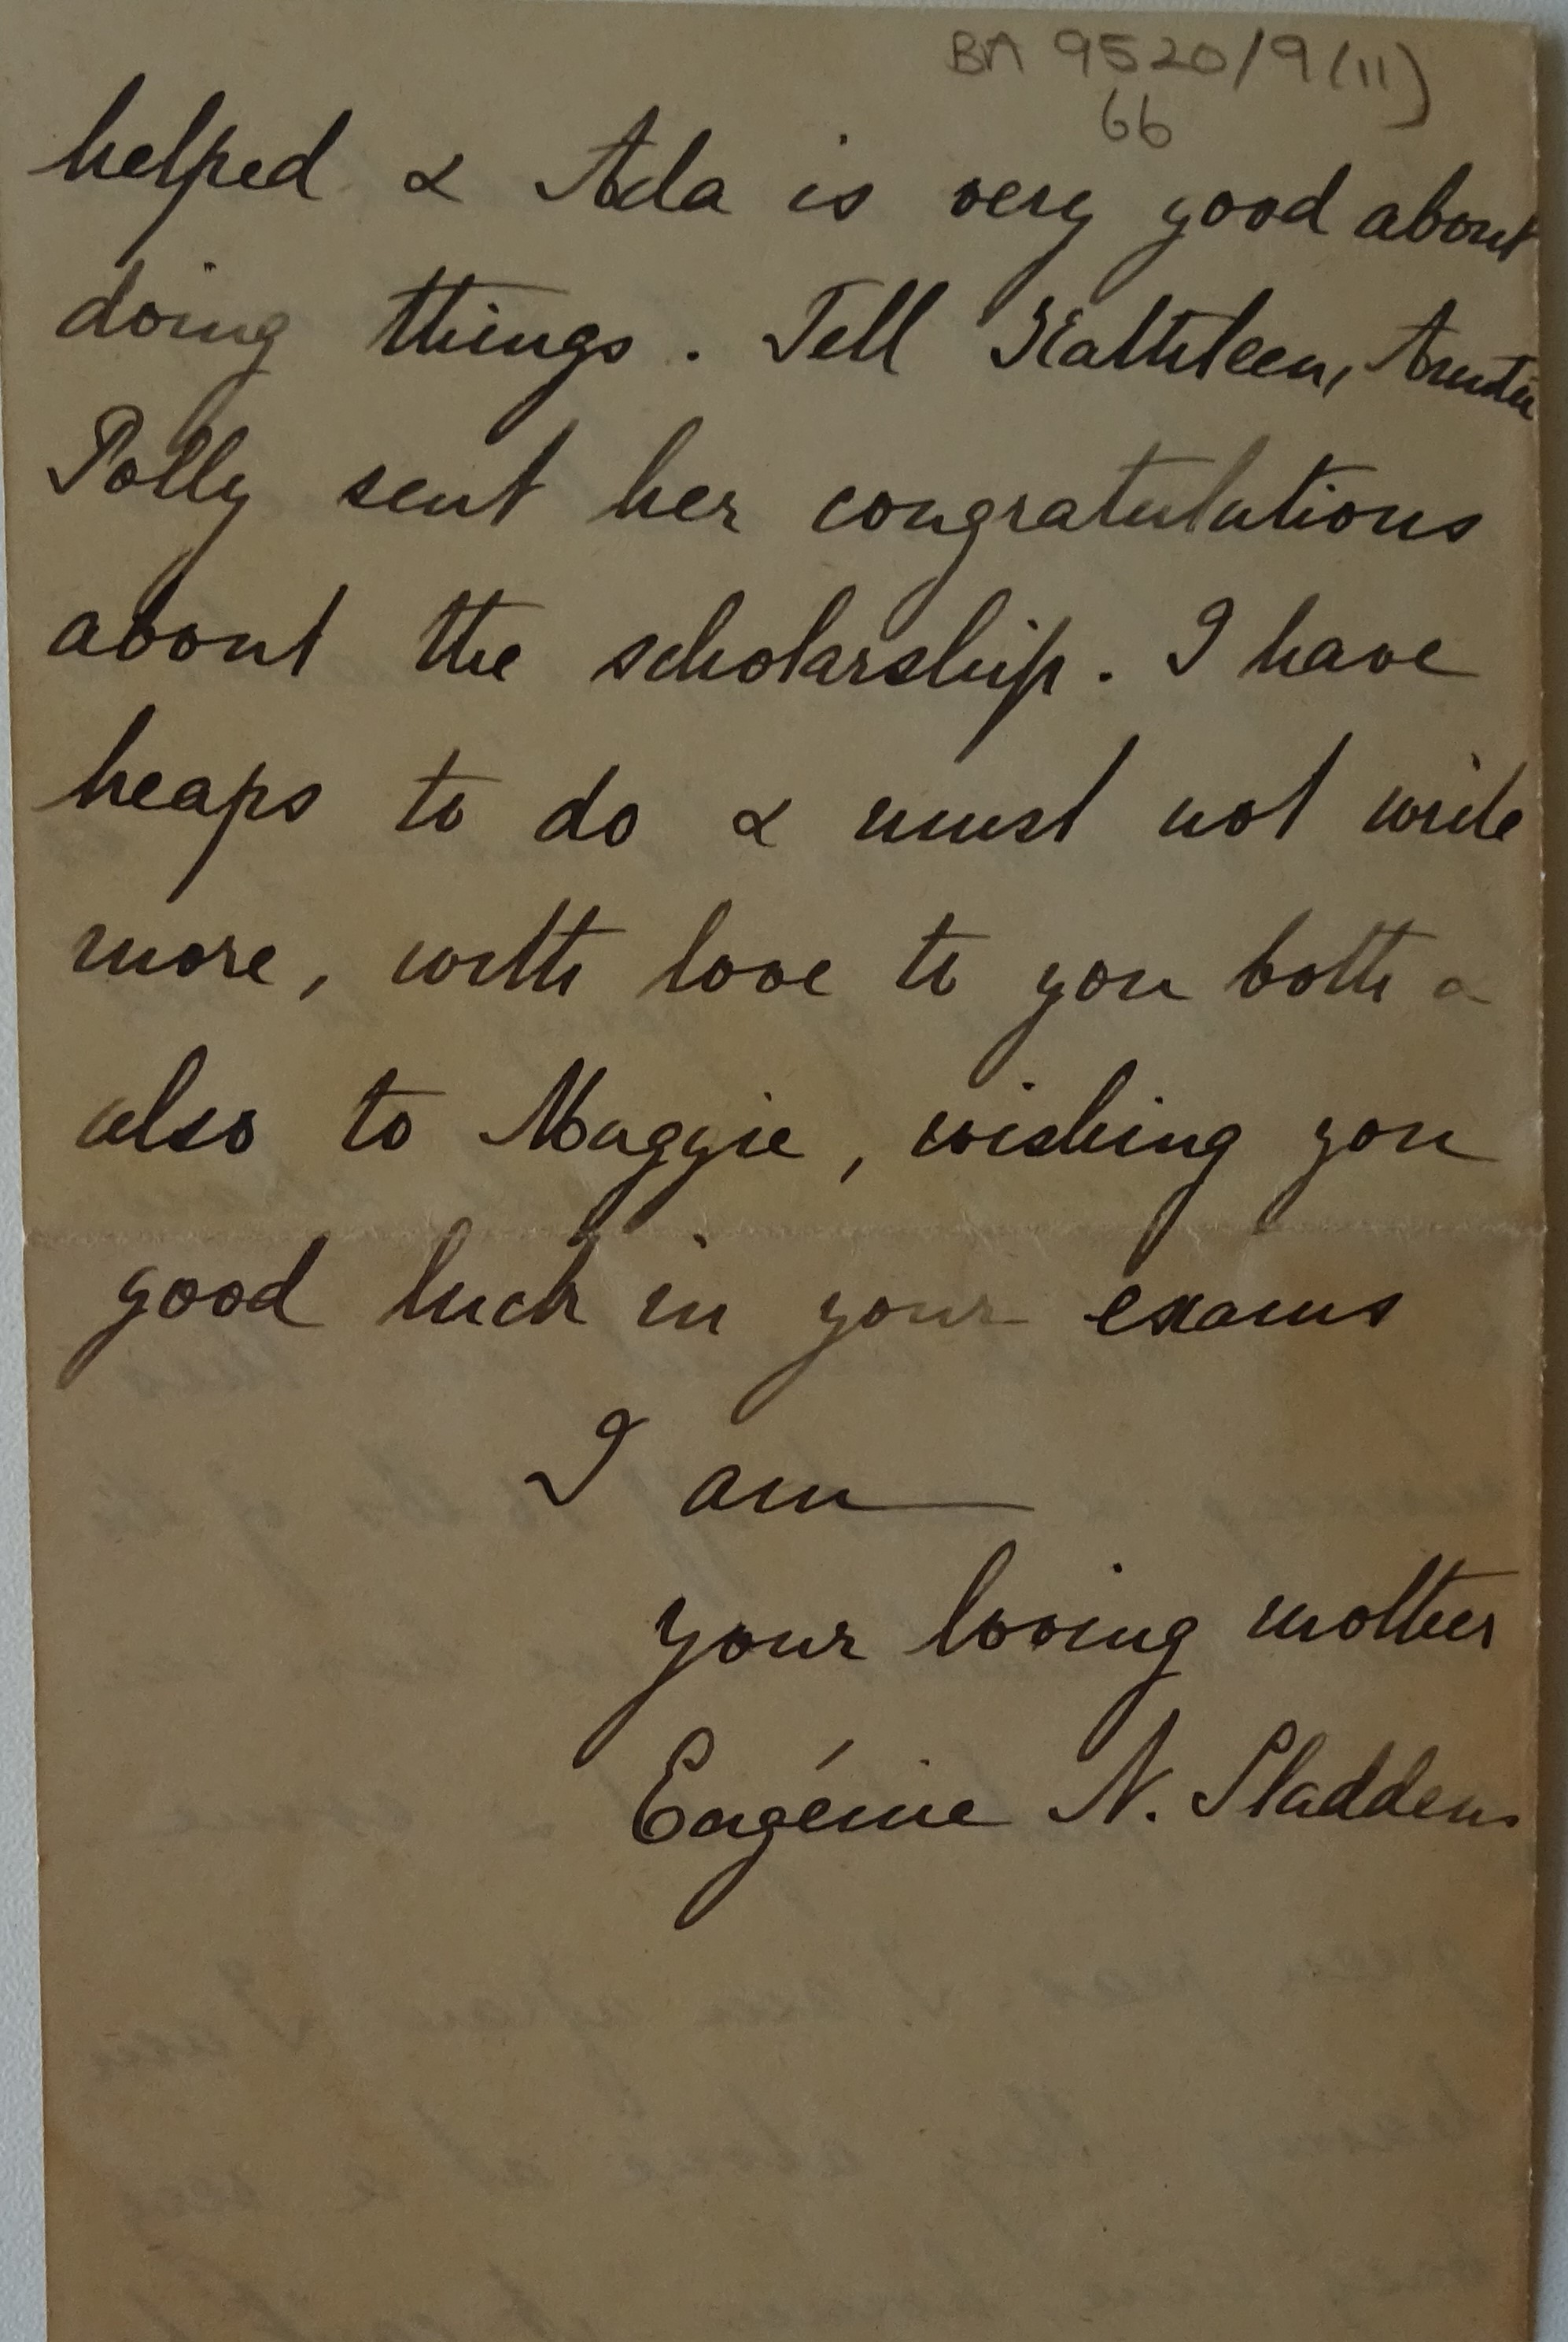 BA 9520/9(11)
66
helped & Ada is very good about
doing things. Tell Kathleen, Auntie
Polly sent her congratulations
about the scholarship. I have
heaps to do & must not write
more, with love to you both &
also to Maggie, wishing you
good luck in your exams
I am
your loving mother
Eugénie N. Sladden